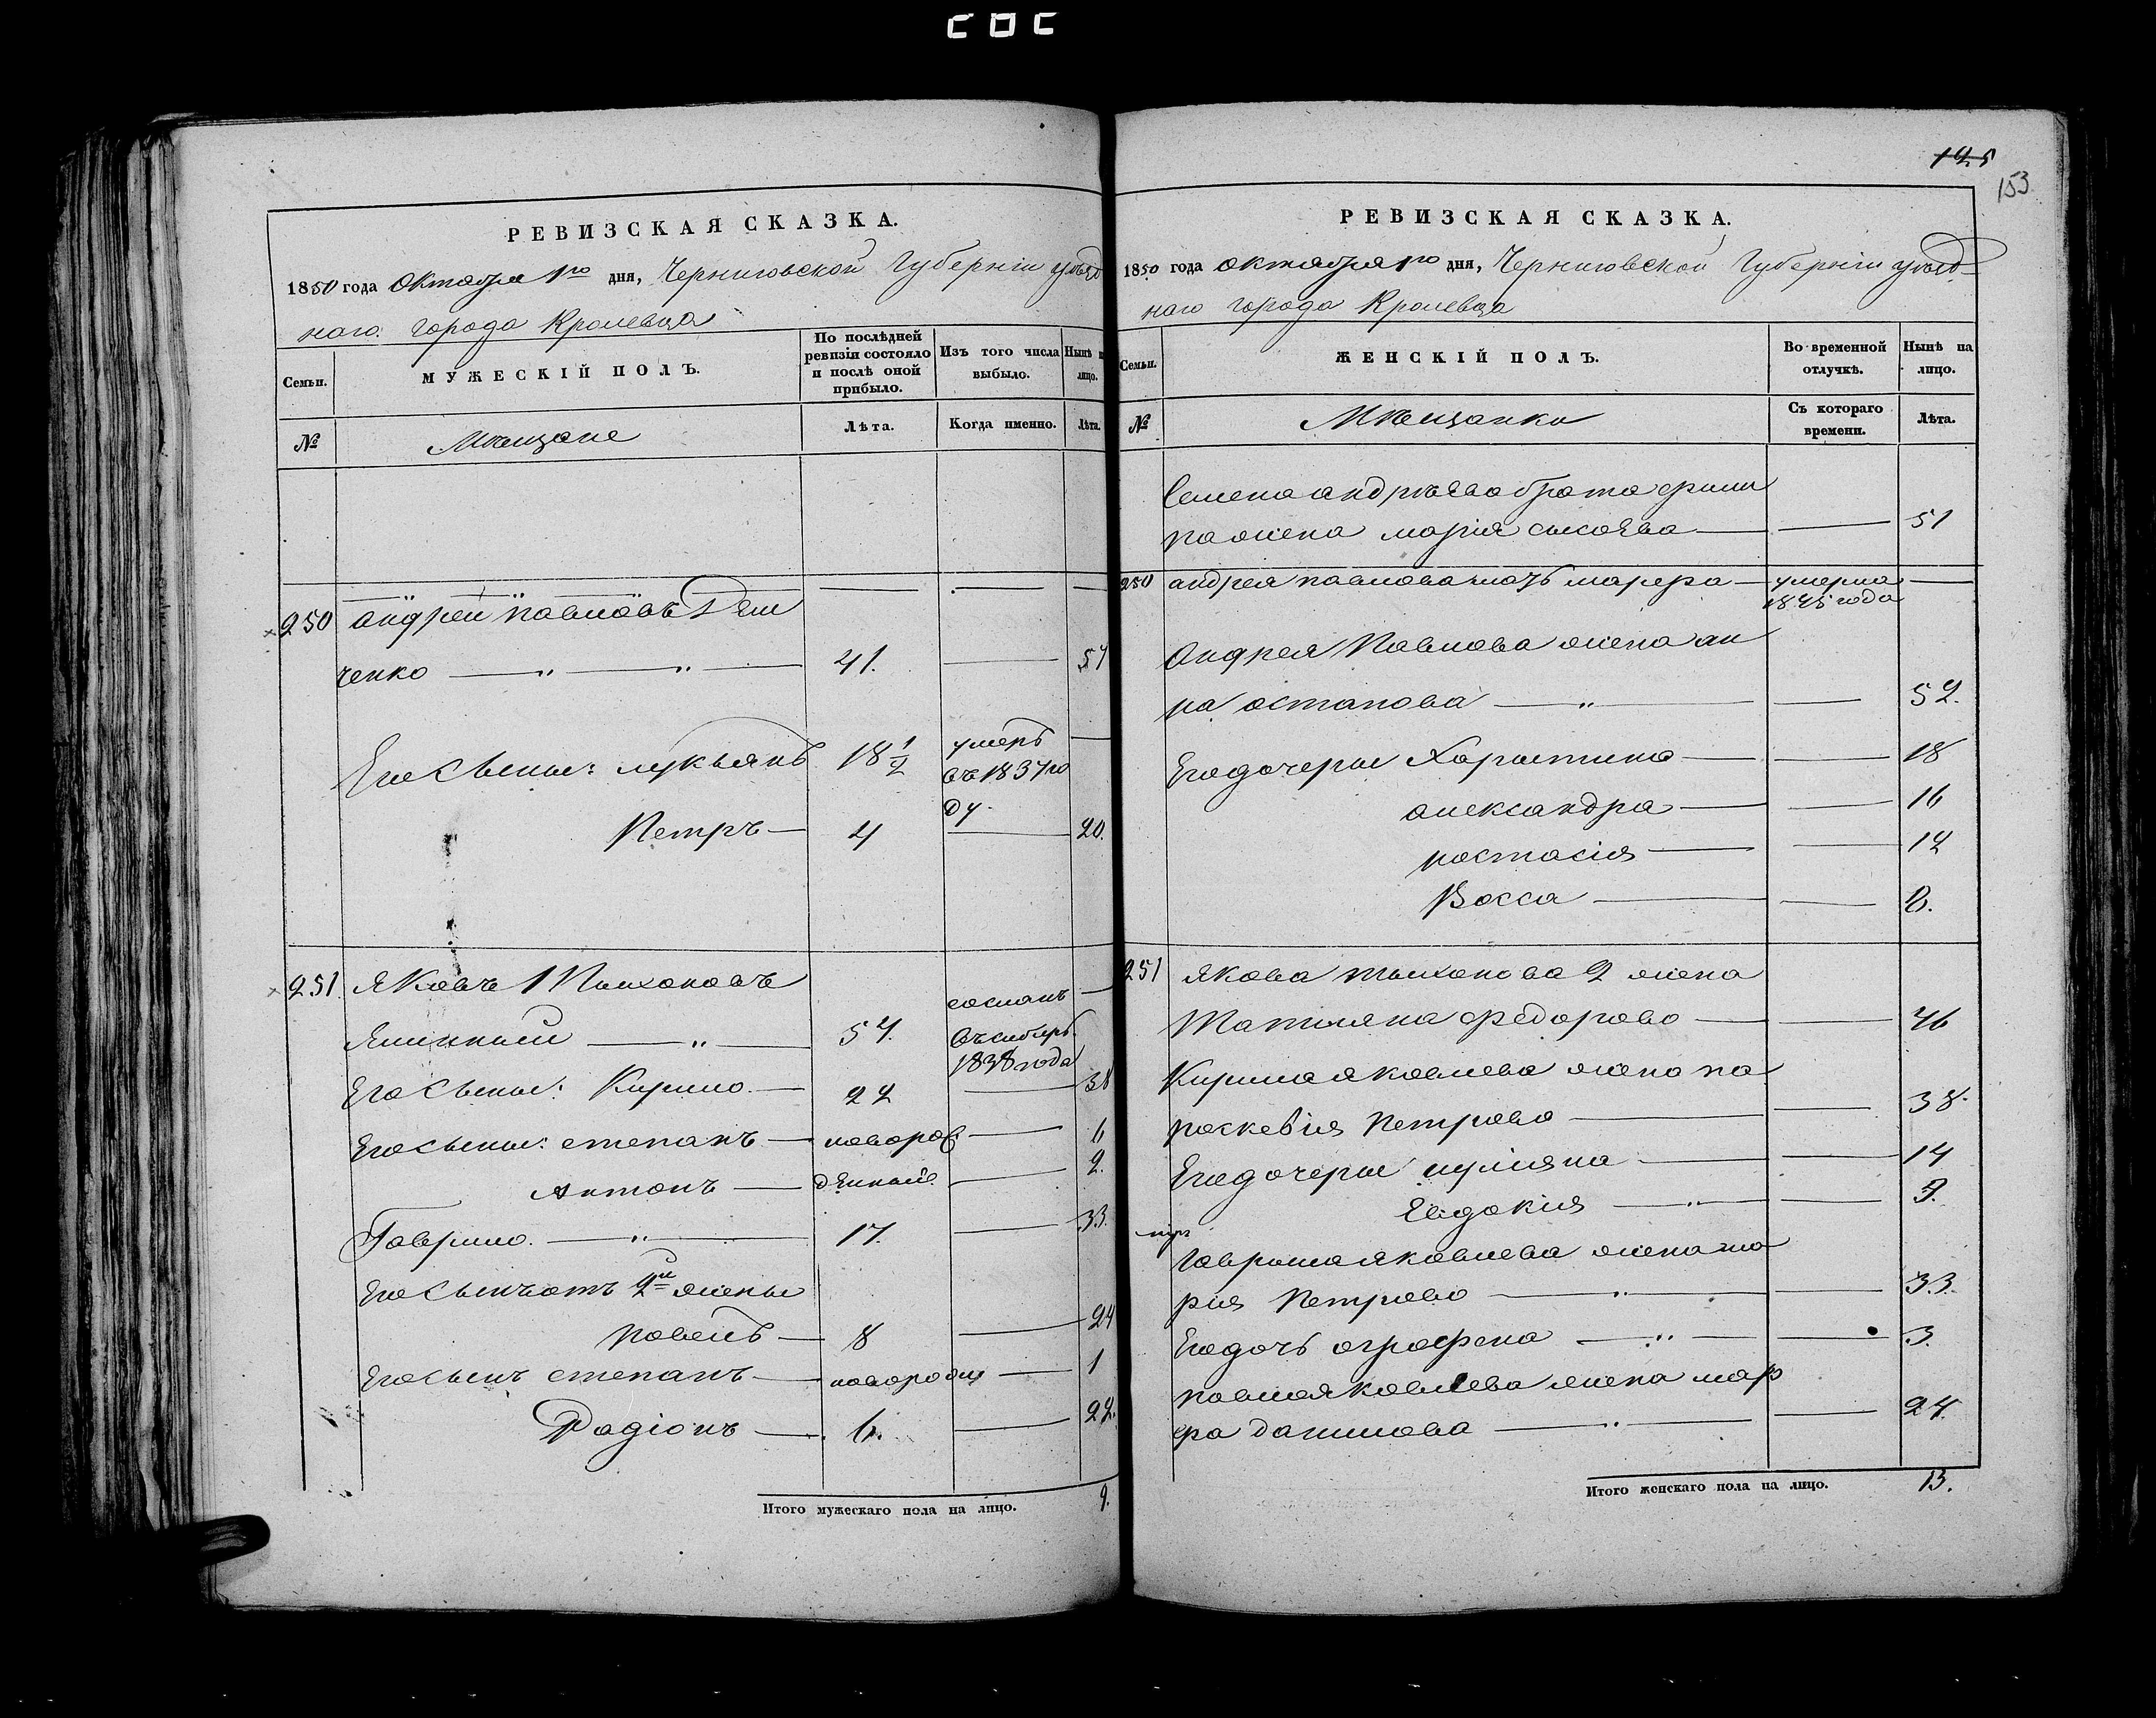 125
153
РЕВИЗСКАЯ СКАЗКА.
1850 года октября 1го дня, Черниговской Губерніи уѣзд
наго города Кролевца
Семьи.
МУЖЕСКІЙ ПОЛЪ.
По послѣдней ревизіи состояло и послѣ оной прибыло.
Изъ того числа выбыло.
Нынѣ на лицо.
№
Мѣщане
Лѣта.
Когда именно.
Лѣта.
250 андрей павловъ
ченко 41. 57
Его Сыны: лукьянъ 18 1/2 умеръ въ 1837 году
Петръ 4 20.
251. Яковъ Тихоновъ
57. сосланъ въ сибирь 1838 года
Его Сыны: Кирило 22 38
Его сыны: степанъ новорож 6
Антонъ денный 2.
Гаврило. 17. 33.
Его Сынъ отъ 2й жены
павелъ 8 24
Его сынъ степанъ новорожд 1
Радіонъ 6. 22.
Итого мужескаго пола на лицо. 9.
РЕВИЗСКАЯ СКАЗКА.
1850 года октября 1го дня, Черниговской Губерніи уѣзд
наго города Кролевца
Семьи.
ЖЕНСКІЙ ПОЛЪ.
Во временной отлучкѣ.
Нынѣ на лицо.
№
Мѣщанки
Съ котораго времени.
Лѣта.
Семена андрѣева брата фили
па жена марія сысоева 51
250 андрея павлова мать марфа умерла 1845 года
Андрея Павлова жена ан
на остапова 52.
Его дочери Харитина 18
александра 16
настасія 12
Васса 8.
251 якова тихонова 2 жена
Татияна федорова 46
Кирила яковлева жена па
раскевія Петрова 38.
Его дочери иуліяна 14
Евдокія 9.
гаврила яковлева жена ма
рія Петрова 33.
Его дочь аграфена 3.
павла яковлева жена мар
фа данилова 24.
Итого женскаго пола на лицо. 13.